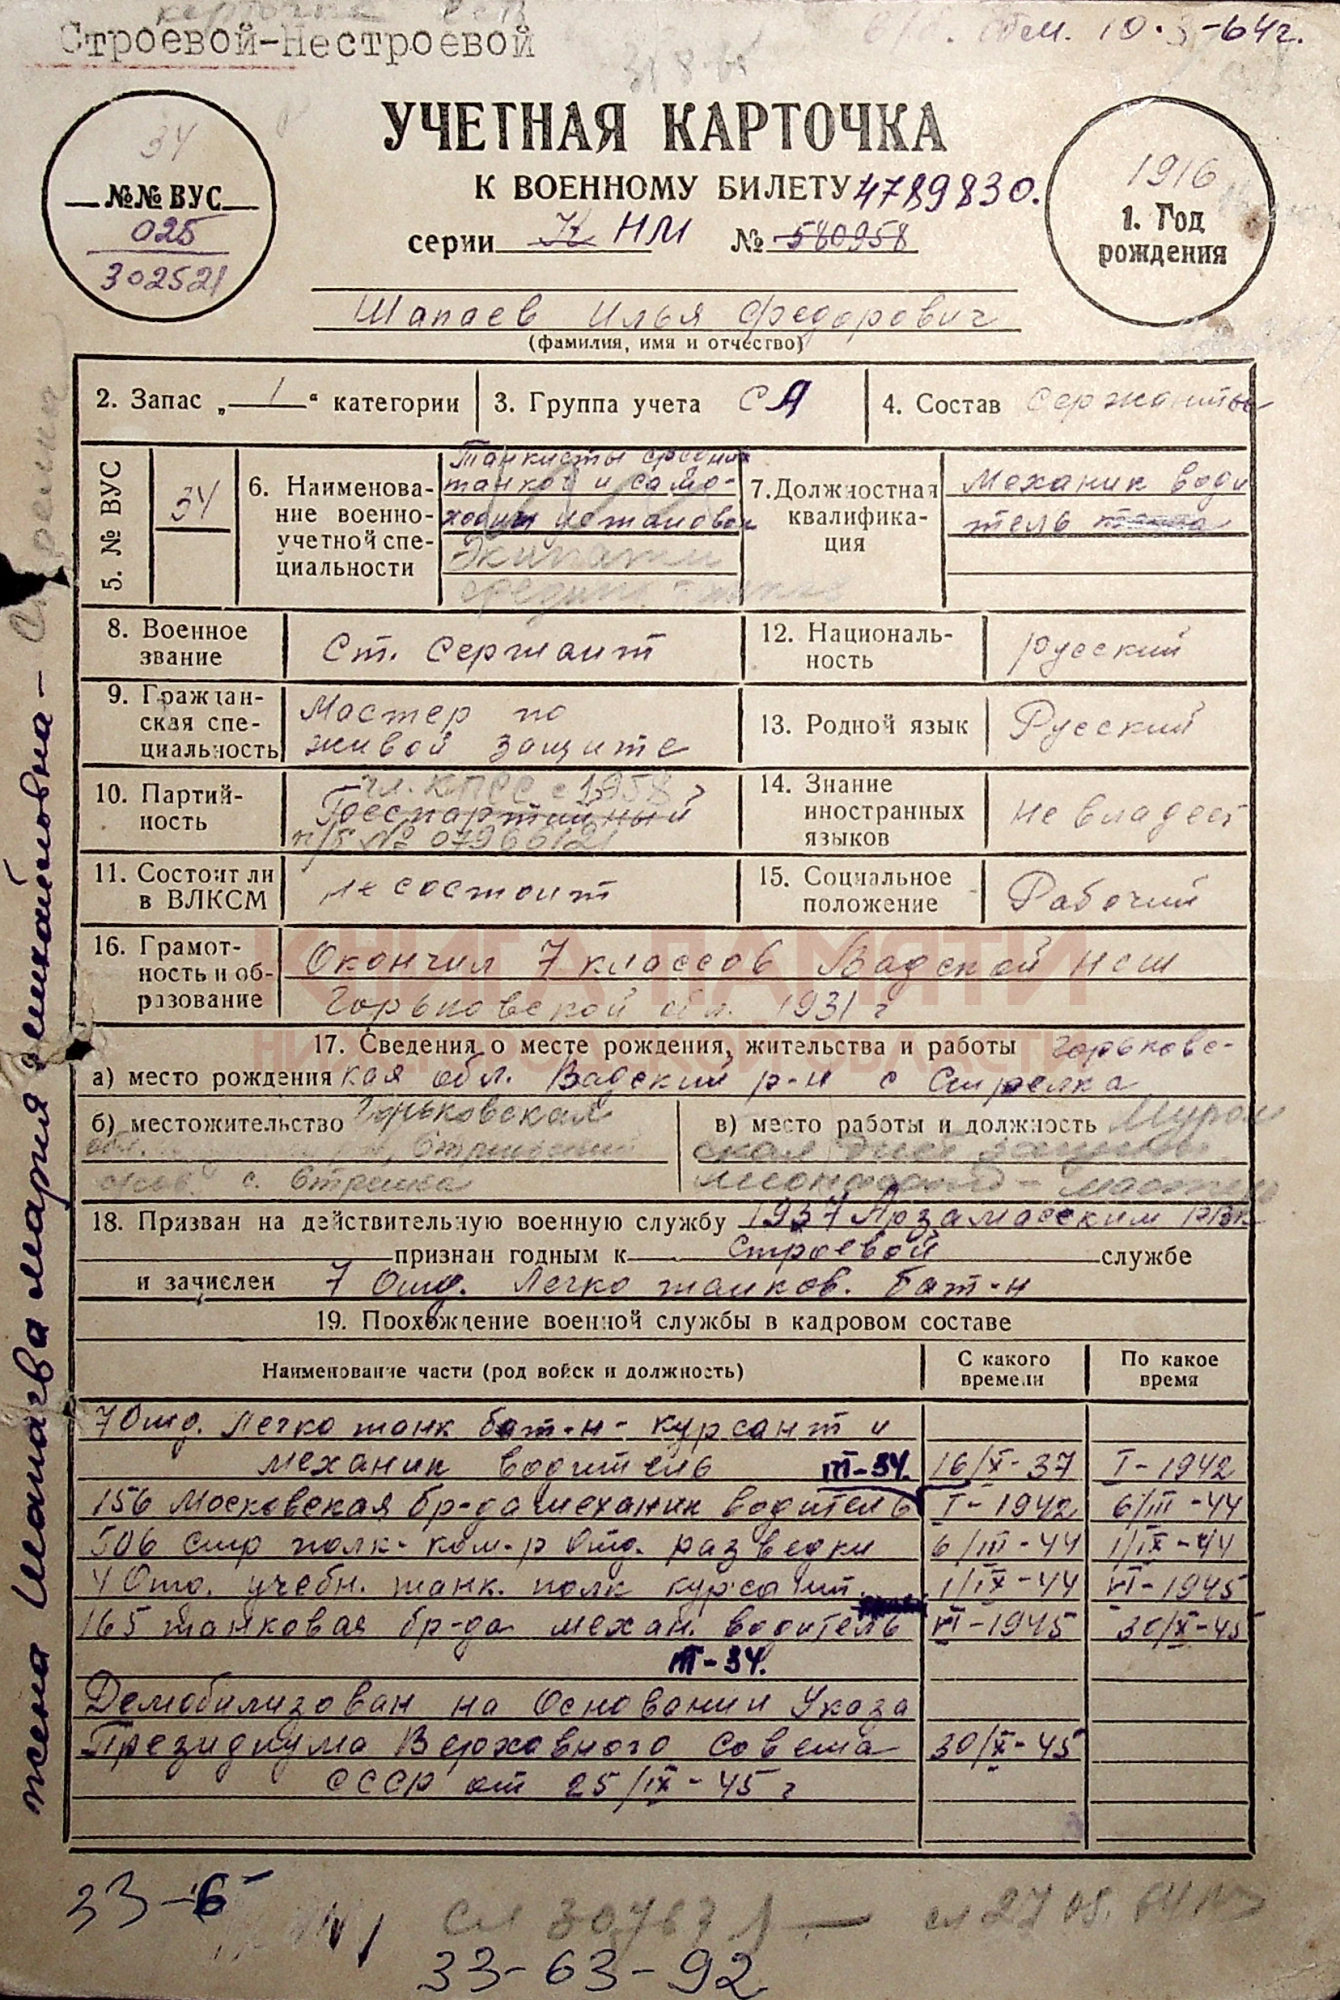 Строевой-Нестроевой
10.3-64г.
УЧЕТНАЯ КАРТОЧКА
К ВОЕННОМУ БИЛЕТУ 4789830.
серии К НМ № 580958
34
№№ ВУС
025
302521
1916
1. Год
рождения
Шапаев Илья Федорович
(фамилия, имя и отчество)
2. Запас „1“ категории
3. Группа учета СА
4. Состав Сержанты
5. № ВУС
34
6. Наименова-
ние военно-
учетной спе-
циальности
Танкисты средних
танков и само-
ходных установок
Экипажи
средних
7. Должностная
квалифика-
ция
Механик води
тель танка
8. Военное
звание
Ст. Сержант
12. Националь-
ность
русский
9. Граждан-
ская спе-
циальность
Мастер по
живой защите
13. Родной язык
Русский
10. Партий-
ность
чл. КПСС с 1958 г
Беспартийный
п/б № 07966121
14. Знание
иностранных
языков
Не владеет
11. Состоит ли
в ВЛКСМ
не состоит
15. Социальное
положение
Рабочий
16. Грамот-
ность и об-
разование
Окончил 7 классов Вадской нсш
Горьковской обл. 1931 г
КНИГА ПАМЯТИ
НИЖЕГОРОДСКОЙ ОБЛАСТИ
17. Сведения о месте рождения, жительства и работы Горьковс-
а) место рождения кая обл. Вадский р-н с Стрелка
б) местожительство Горьковская
обл.
с. Стрелка
в) место работы и должность Муром
ская
18. Призван на действительную военную службу 1937 Арзамасским РВК
признан годным к строевой службе
и зачислен 7 Отд. Легко танков. бат-н
19. Прохождение военной службы в кадровом составе
Наименование части (род войск и должность)
С какого
времени
По какое
время
7 Отд. Легко танк бат-н - курсант и
механик водитель Т-34. 16/X-37 I-1942
156 Московская бр-да механик водитель I-1942 6/III-44
506 стр полк- ком-р Отд. разведки 6/III-44 1/IX-44
4 Отд. учебн. танк. полк курсант. 1/IX-44 VI-1945
165 танковая бр-да механ. водитель VI-1945 30/X-45
Т-34.
Демобилизован на Основании Указа
Президиума Верховного Совета 30/X-45
СССР от 25/IX-45 г
жена Шапаева Мария Михайловна -
33-6
33-63-92